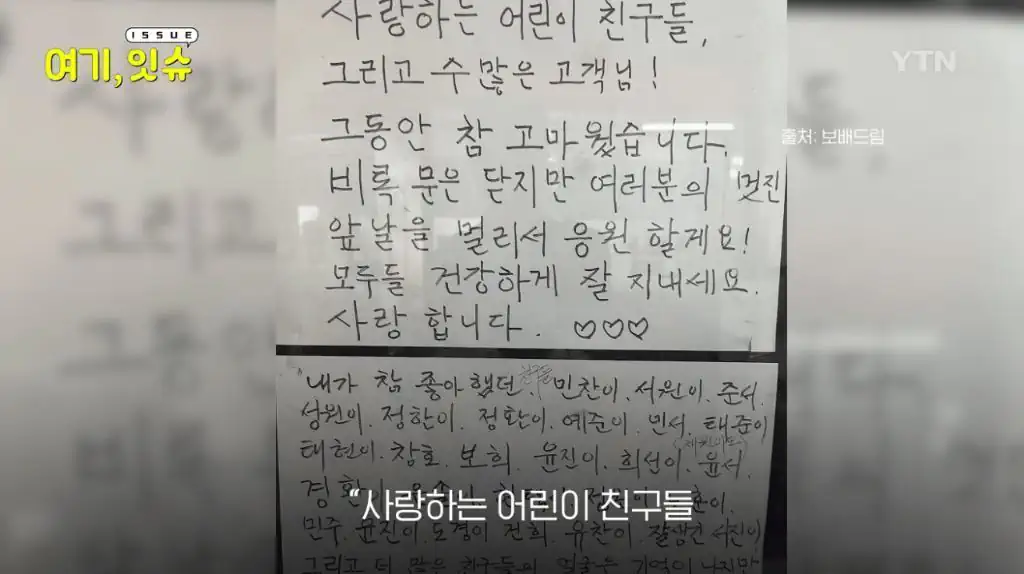 ISSUE
여기, 잇슈
YTN
출처: 보배드림
사랑하는 어린이 친구들,
그리고 수 많은 고객님!
그동안 참 고마웠습니다.
비록 문은 닫지만 여러분의 멋진
앞날을 멀리서 응원 할게요!
모두들 건강하게 잘 지내세요.
사랑 합니다. ♡♡♡
내가 참 좋아했던 민찬이. 서원이. 준서.
성원이. 정한이. 정환이. 예준이. 민서. 태준이
태현이. 창호. 보희. 윤진이. 희선이. 윤서.
경환
“사랑하는 어린이 친구들
민주. 윤진이. 도경이 건희. 유찬이. 잘생긴 서진이
그리고 더 많은 친구들의 얼굴은 기억이 나지만